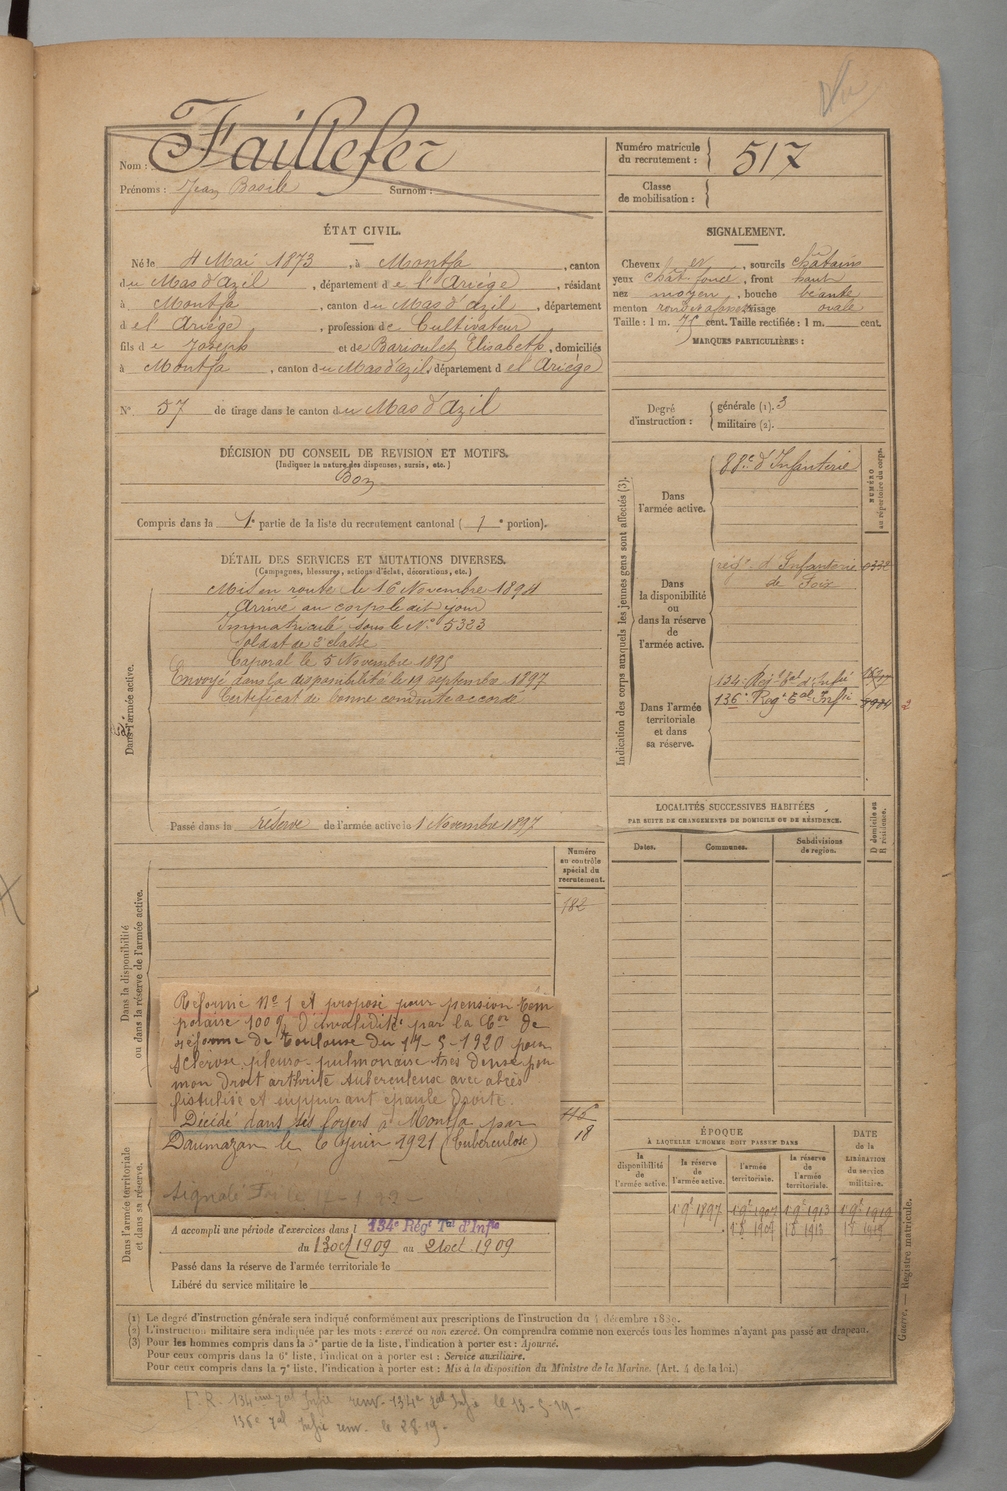 Nom : Faillefer
Prénoms : Jean Basile Surnom :
Numéro matricule du recrutement : 517
Classe de mobilisation :
ÉTAT CIVIL.
Né le 4 Mai 1873, à Montfa, canton
du Mas d'azil, département de l'Ariége, résidant
à Montfa, canton du Mas d'azil, département
de l'Ariége, profession de Cultivateur
fils de Joseph et de Barioulet Elisabeth, domiciliés
à Montfa, canton du Mas d'azil, département de l'Ariége
N° 57 de tirage dans le canton du Mas d'Azil
SIGNALEMENT.
Cheveux et, sourcils châtains
yeux chât foncé, front haut
nez moyen, bouche béante
menton rond, visage ovale
Taille : 1 m. 75 cent. Taille rectifiée : 1 m. cent.
MARQUES PARTICULIÈRES :
Degré d'instruction : générale (1). 3
militaire (2).
DÉCISION DU CONSEIL DE REVISION ET MOTIFS.
(Indiquer la nature des dispenses, sursis, etc.)
Bon
Compris dans la 1e partie de la liste du recrutement cantonal ( 1e portion).
DÉTAIL DES SERVICES ET MUTATIONS DIVERSES.
(Campagnes, blessures, actions d'éclat, décorations, etc.)
Dans l'armée active.
Mis en route le 16 Novembre 1894
Arrivé au corps le dit jour
Immatriculé sous le N° 5323
Soldat de 2e classe
Caporal le 5 Novembre 1895
Envoyé dans la disponibilité le 19 septembre 1897
Certificat de bonne conduite accordé
Passé dans la réserve de l'armée active le 1 Novembre 1897
Indication des corps auxquels les jeunes gens sont affectés (3).
NUMÉRO au répertoire du corps.
Dans l'armée active.
88e d'Infanterie
Dans la disponibilité ou dans la réserve de l'armée active.
régt d'Infanterie
de Foix
Dans l'armée territoriale et dans sa réserve.
134e Régt Tal d'Infie
136e Régt Tal Infie
LOCALITÉS SUCCESSIVES HABITÉES
PAR SUITE DE CHANGEMENTS DE DOMICILE OU DE RÉSIDENCE.
Dates. Communes. Subdivisions de région. D domicile ou R résidence.
Dans la disponibilité ou dans la réserve de l'armée active.
Numéro au contrôle spécial du recrutement.
182
Réformé N° 1 et proposé pour pension tem
poraire 100% d'invalidité par la Con de
réforme de Toulouse du 14-5-1920 pour
sclérose pleuro-pulmonaire très dense pou
mon droit arthrite tuberculeuse avec abcès
fistulisé et suppurant épaule droite.
Décédé dans ses foyers à Montfa par
Daumazan le 6 Juin 1921 (tuberculose)
18
Dans l'armée territoriale et dans sa réserve.
A accompli une période d'exercices dans l 134e Régt Tal d'Infie
du 13 oct 1909 au 21 oct 1909
Passé dans la réserve de l'armée territoriale le
Libéré du service militaire le
ÉPOQUE
À LAQUELLE L'HOMME DOIT PASSER DANS
la disponibilité de l'armée active. la réserve de l'armée active. l'armée territoriale. la réserve de l'armée territoriale. DATE de la LIBÉRATION du service militaire.
1 9bre 1897 1 9bre 1907 1 9bre 1913 1 9bre 1919
Guerre. — Registre matricule.
(1) Le degré d'instruction générale sera indiqué conformément aux prescriptions de l'instruction du 4 décembre 1889.
(2) L'instruction militaire sera indiquée par les mots : exercé ou non exercé. On comprendra comme non exercés tous les hommes n'ayant pas passé au drapeau.
(3) Pour les hommes compris dans la 5e partie de la liste, l'indication à porter est : Ajourné.
Pour ceux compris dans la 6e liste, l'indication à porter est : Service auxiliaire.
Pour ceux compris dans la 7e liste, l'indication à porter est : Mis à la disposition du Ministre de la Marine. (Art. 4 de la loi.)
134ème Tal Infie renv. 134e Tal Infie le 13-5-19-
136e Tal Infie renv. le 28-19-